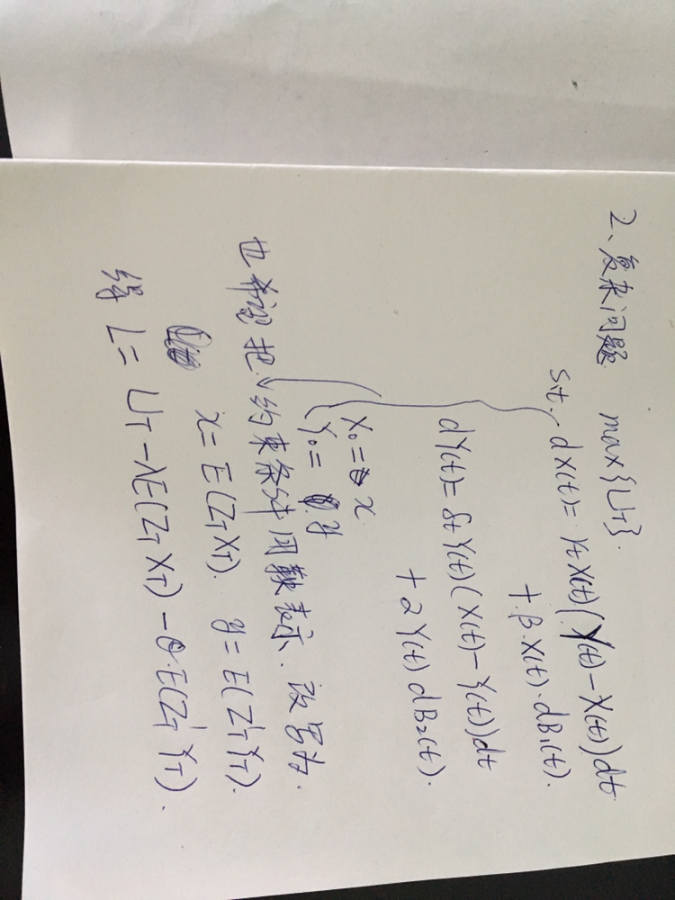 2、复杂问题 max{U_T}.
s.t. dX(t)= γ_t X(t)(Y(t)-X(t))dt
+ β·X(t)·dB₁(t).
dY(t)= δ_t Y(t)(X(t)-Y(t))dt
+ αY(t)dB₂(t).
X₀= x
Y₀= y
也希望把 约束条件 用 表示. 改写为.
x=E(Z_T X_T). y=E(Z'_T Y_T).
得 L= U_T-λE(Z_T X_T)-θ·E(Z'_T Y_T).